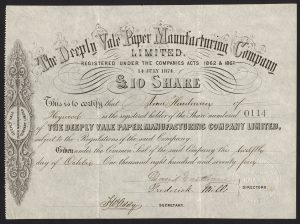 The Deeply Vale Paper Manufacturing Company
LIMITED.
REGISTERED UNDER THE COMPANIES ACTS 1862 & 1867
14 JULY 1874
£10 SHARE
This is to certify that of
Heywood is the registered holder of the Share numbered 0114
OF THE DEEPLY VALE PAPER MANUFACTURING COMPANY LIMITED,
subject to the Regulations of the said Company.
Given under the Common Seal of the said Company the twelfth
day of October One thousand eight hundred and seventy four
Frederick Mills DIRECTORS
SECRETARY.